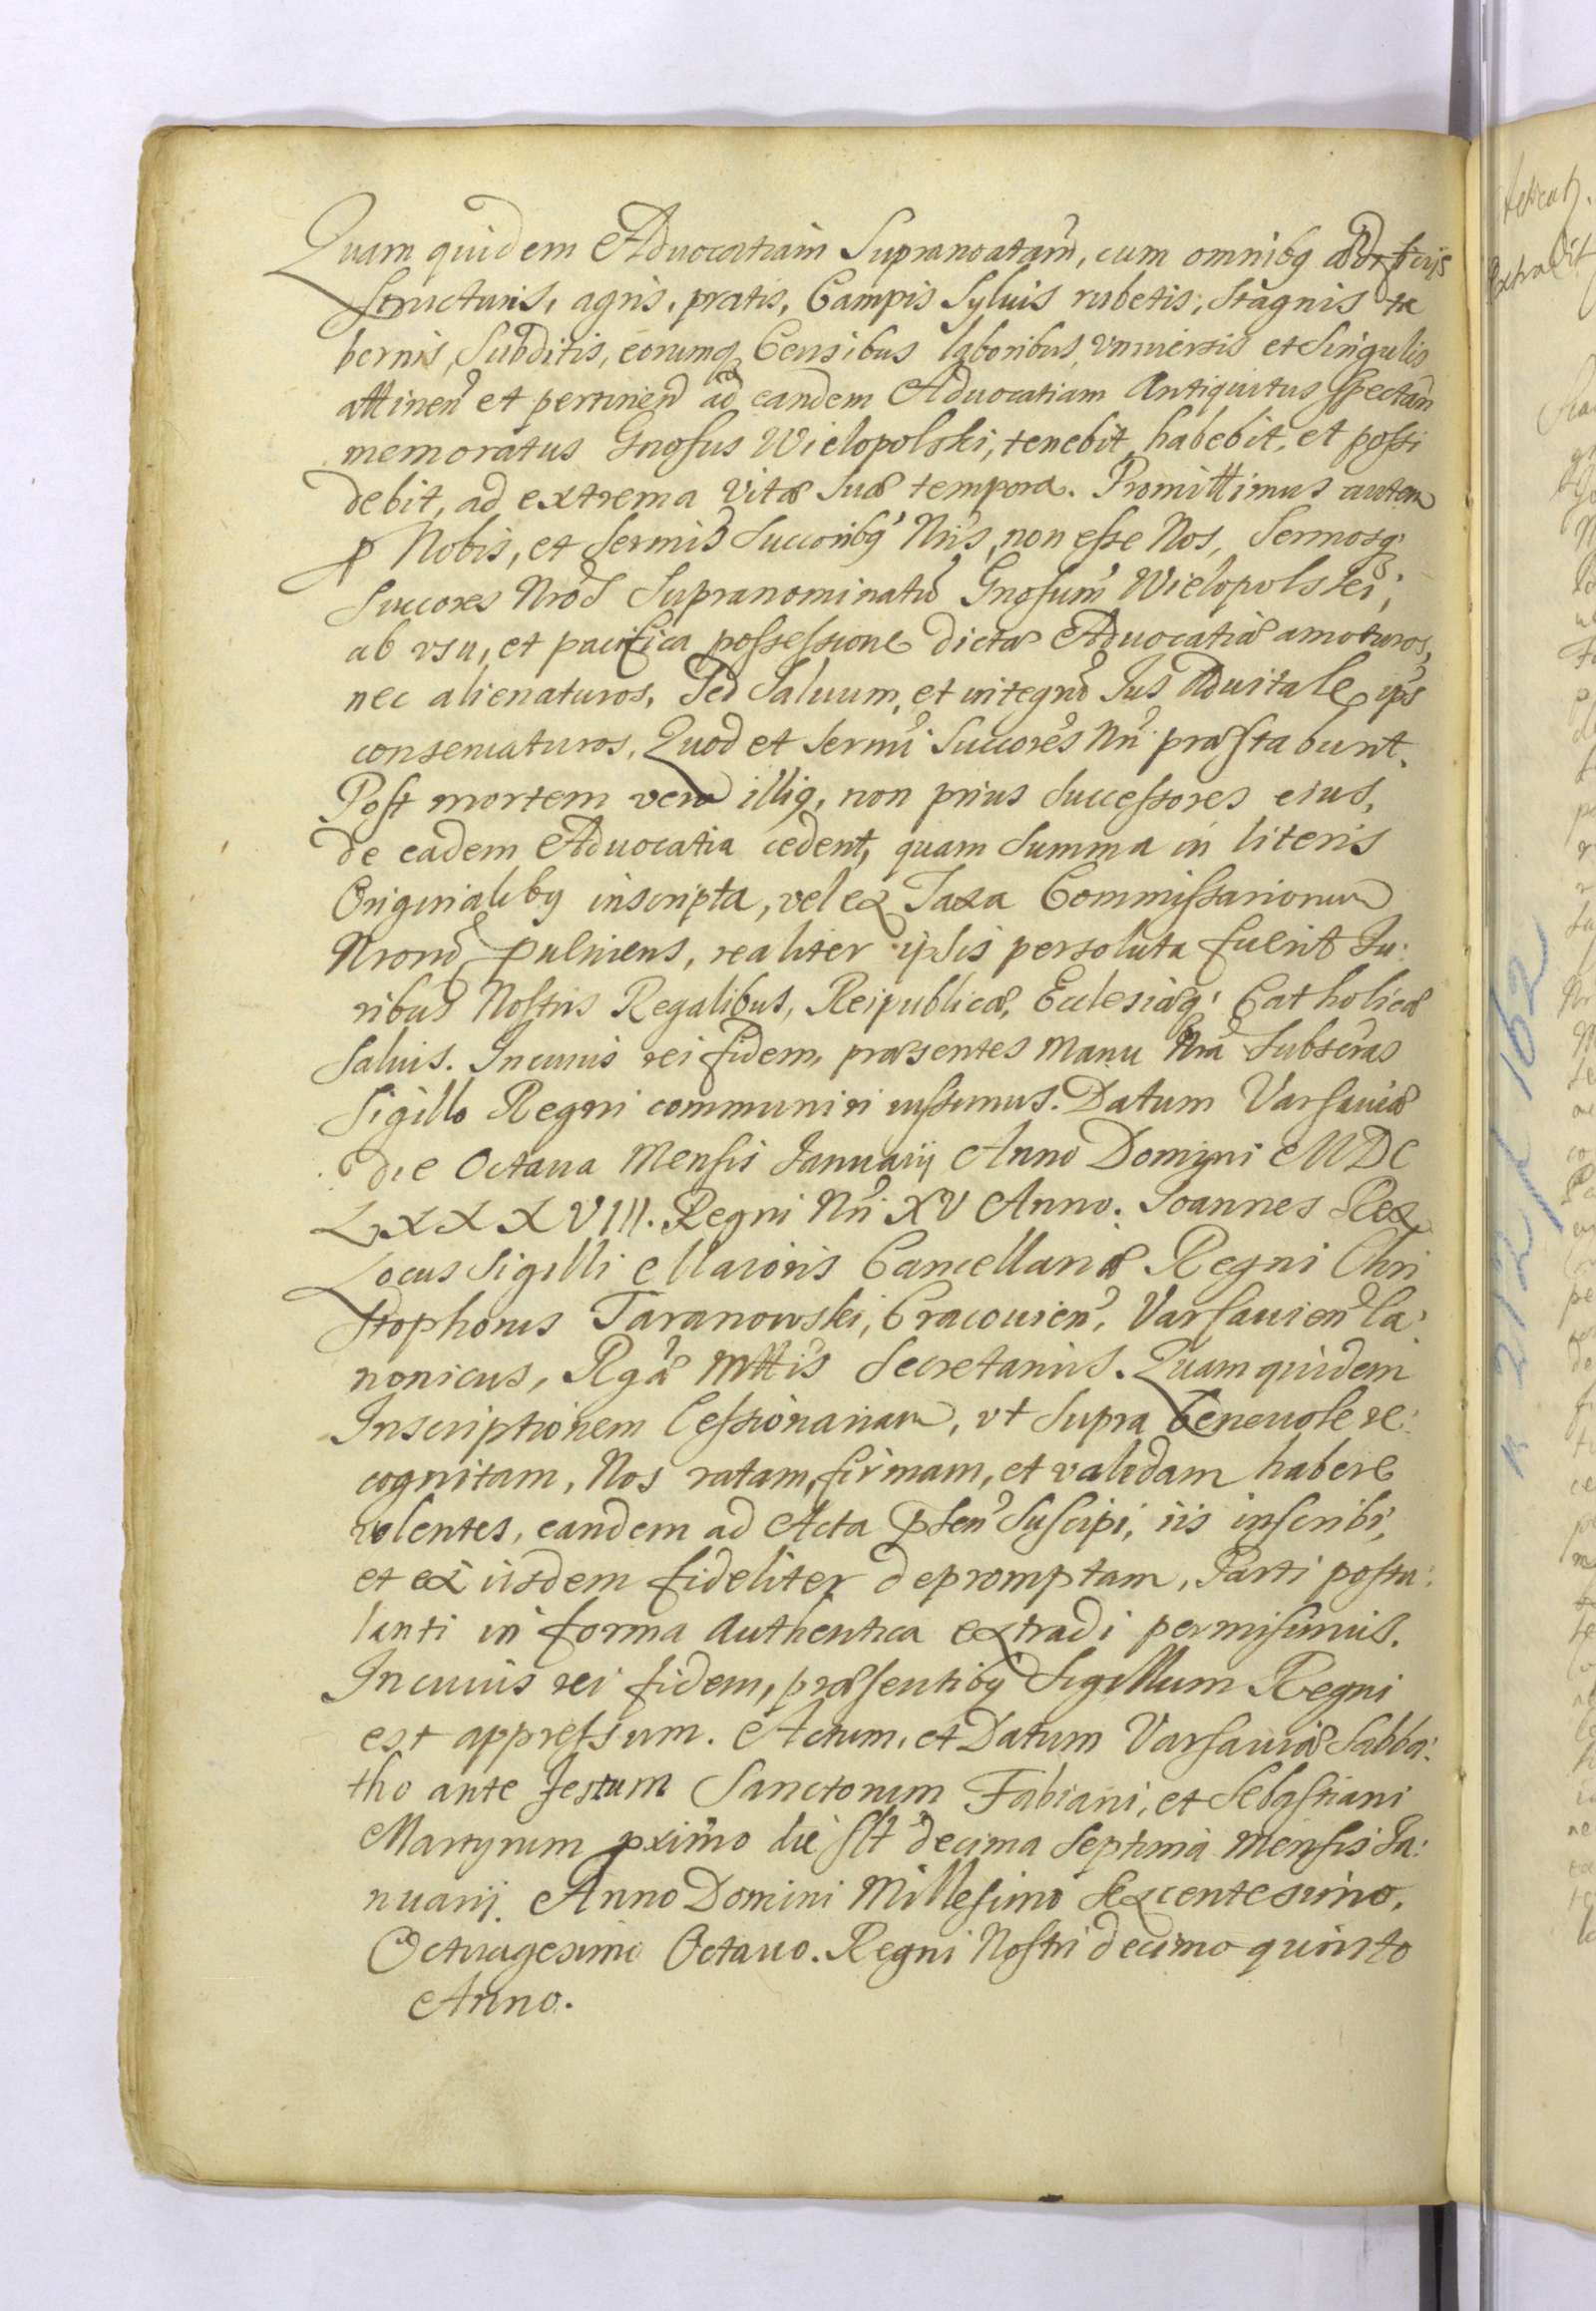 Quam quidem Aduocatiam Supranoatam, cum omnibq ædificijs
structuris, agris, pratis, Campis Syluis rubetis, stagnis ta
bernis, Subditis, eorumq Censibus laboribus, vniuersis et Singulis
attinen et pertinen ad eandem Aduocatiam Antiquitus spectan
memoratus Gnosus Wielopolski, tenebit, habebit, et possi
debit, ad extrema Vitæ Suæ tempora. Promittimus autem
p Nobis, et Sermis Succoribq Nris, non esse Nos, Sermosq
Succores Nros Supranominatu Gnosum Wielopolski,
ab vsu, et pacifica possessione dictæ Aduocatiæ amoturos,
nec alienaturos, Sed Saluum, et integru Jus Aduitale ips
conseruaturos, Quod et Sermi Succores Nri præstabunt.
Post mortem vero illiq, non prius Successores eius,
de eadem Aduocatia cedent, quam Summa in literis
Originalibq inscripta, vel ex Taxa Commissariorum
Nroru pueniens, realiter ipsis persoluta fuerit Ju:
ribus Nostris Regalibus, Reipublicæ, Ecclesiæq Catholicæ
Saluis. In cuius rei fidem, præsentes Manu Nra Subscras
Sigillo Regni communiri iussimus. Datum Varsauiæ
die Octaua Mensis Januarij Anno Domini MDC
LXXXVIII. Regni Nri XV Anno. Joannes Rex
Locus Sigilli Maioris Cancellariæ Regni Chri
stophorus Taranowski, Cracouien, Varsauien Ca:
nonicus, Rgæ Mttis Secretarius. Quam quidem
Inscriptionem Cessionariam, vt Supra beneuole re:
cognitam, Nos ratam, firmam, et validam habere
volentes, eandem ad Acta psen Suscipi, iis inscribi,
et ex iisdem fideliter depromptam, Parti postu:
lanti in forma authentica extradi permisimus.
In cuius rei fidem, præsentibq Sigillum Regni
est appressum. Actum, et Datum Varsauiæ Sabba:
tho ante festum Sanctorum Fabiani, et Sebastiani
Martyrum pximo die slt decima Septima Mensis Ja:
nuarij. Anno Domini Millesimo Sexcentesimo,
Octuagesimo Octauo. Regni Nostri decimo quinto
Anno.